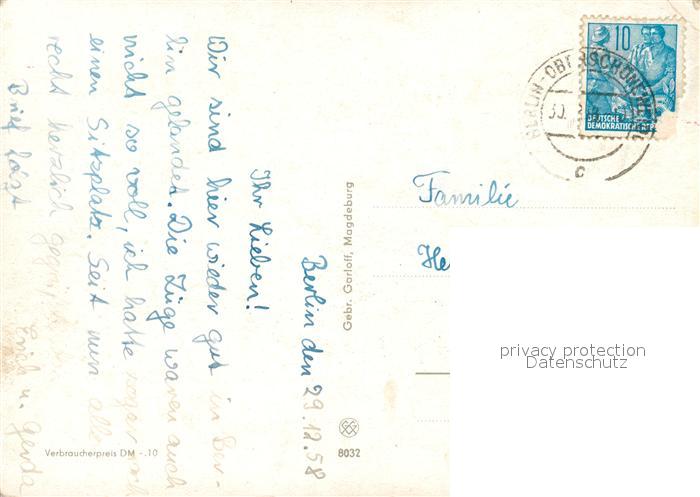 Berlin den 29.12.58
Ihr Lieben!
Wir sind hier wieder gut in Ber-
lin gelandet. Die Züge waren auch
nicht so voll, ich hatte sogar noch
einen Sitzplatz. Seit nun alle
recht herzlich gegrüßt
Erich u. Gerda
Brief folgt
Familie
He
Gebr. Garloff, Magdeburg
Verbraucherpreis DM -.10
8032
10
DEUTSCHE
DEMOKRATISCHE REP
BERLIN-OBERSCHÖNEWEIDE
30.
c
privacy protection
Datenschutz